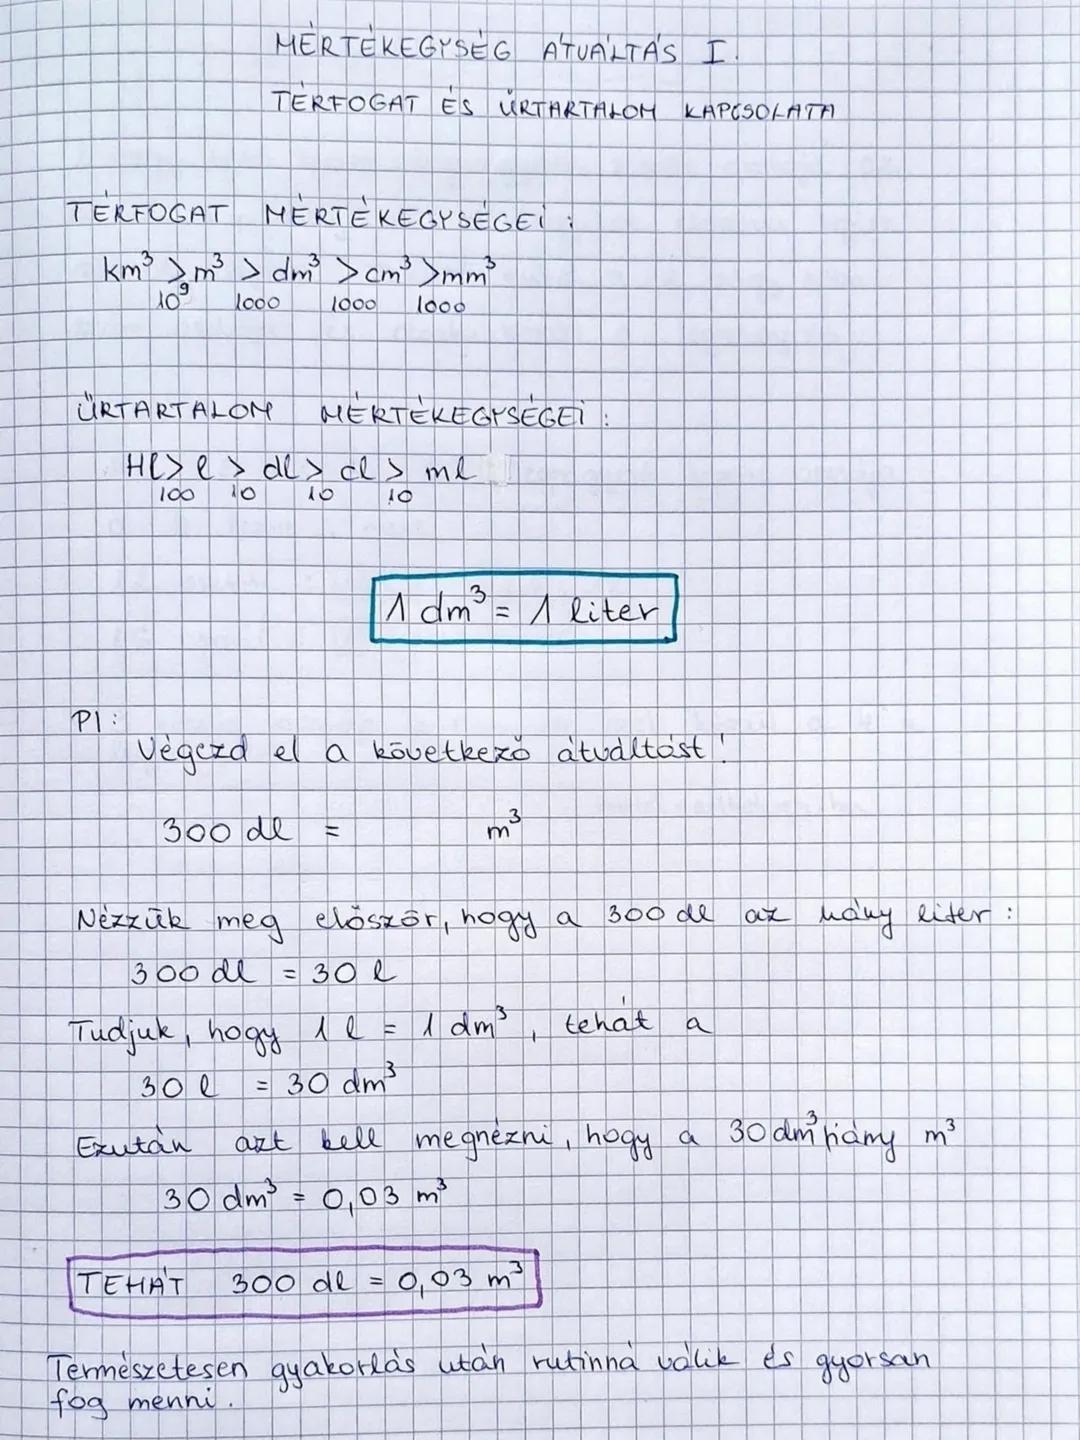 MÉRTÉKEGYSÉG ÁTVÁLTÁS I.
TÉRFOGAT ÉS ŰRTARTALOM KAPCSOLATA
TÉRFOGAT MÉRTÉKEGYSÉGEI:
km³ > m³ > dm³ > cm³ > mm³
10⁹ 1000 1000 1000
ŰRTARTALOM MÉRTÉKEGYSÉGEI:
Hl > l > dl > cl > ml
100 10 10 10
1 dm³ = 1 liter
Pl:
Végezd el a következő átváltást!
300 dl = m³
Nézzük meg először, hogy a 300 dl az hány liter:
300 dl = 30 l
Tudjuk, hogy 1 l = 1 dm³, tehát a
30 l = 30 dm³
Ezután azt kell megnézni, hogy a 30 dm³ hány m³
30 dm³ = 0,03 m³
TEHÁT 300 dl = 0,03 m³
Természetesen gyakorlás után rutinná válik és gyorsan
fog menni.